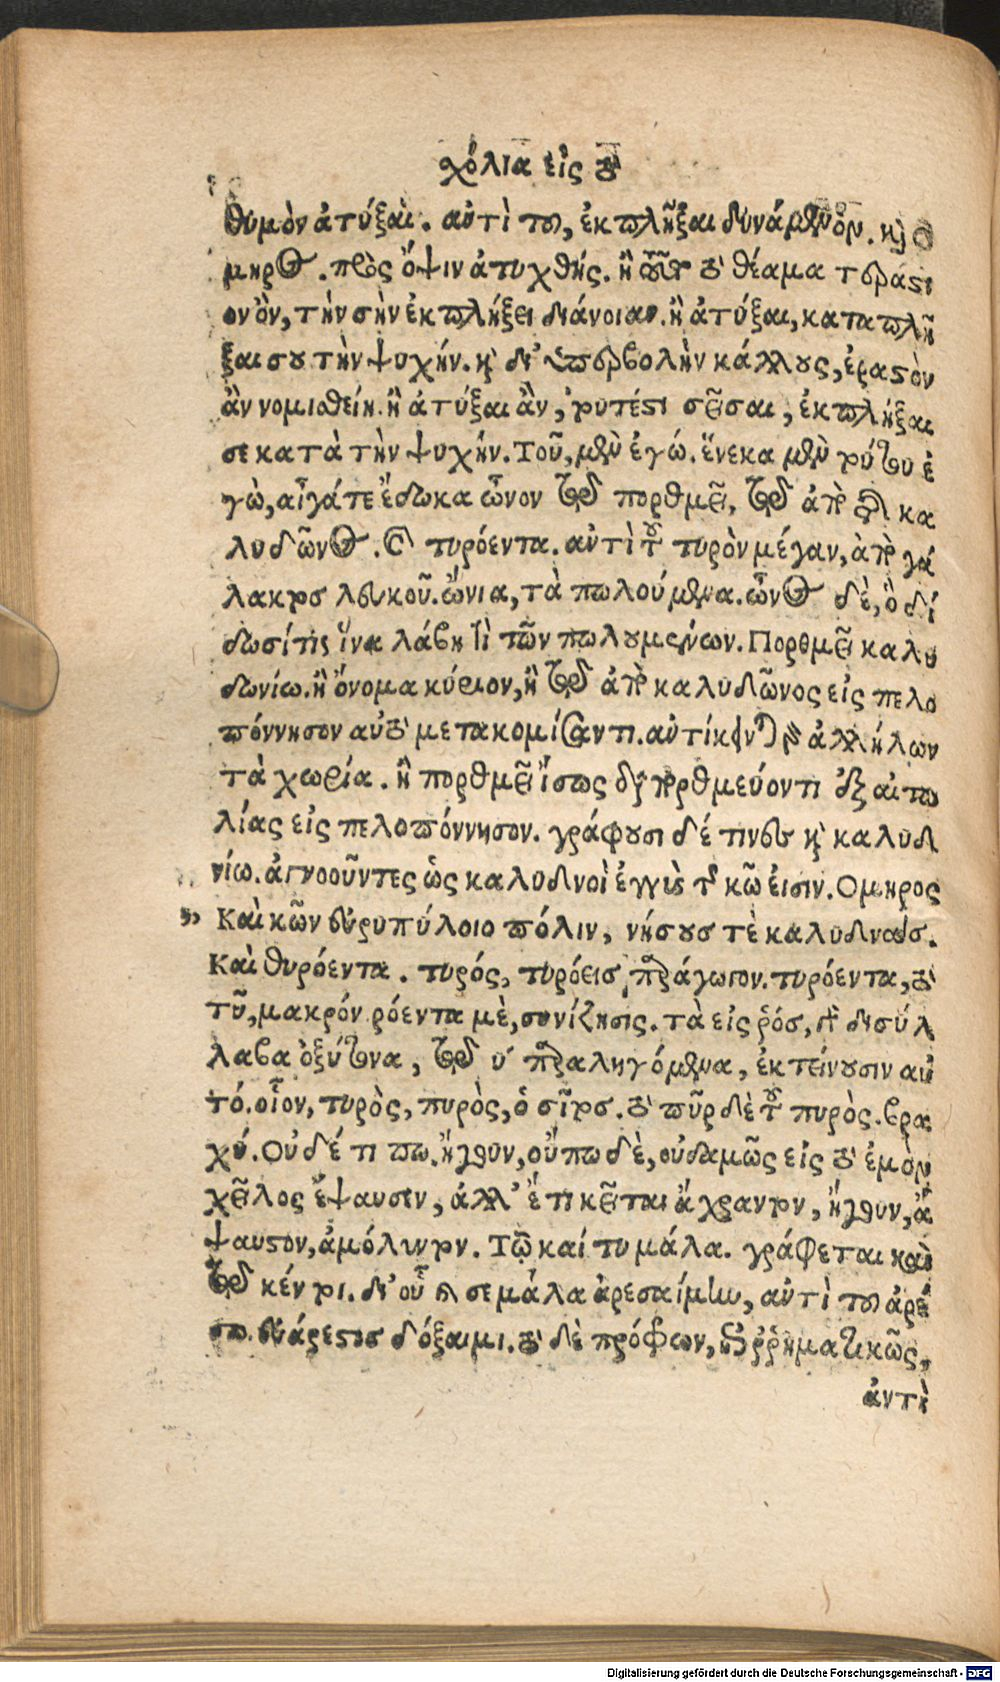 χόλια εἰς τὸ
θυμὸν ἀτύξαι. αὐτὶ τοῦ, ἐκπλῆξαι δυνάμενον. καὶ ὁ
μηρος. πρὸς ὄψιν ἀτυχθής. ἢ οὕτω τὸ θέαμα τεράστι
ον ὂν, τὴν σὴν ἐκπλήξει διάνοιαν. ἢ ἀτύξαι, καταπλῆ
ξαι σου τὴν ψυχήν. καὶ δι' ὑπερβολὴν κάλλους, ἐραστὸν
ἂν νομισθείη. ἢ ἀτύξαι ἂν, ρυτέστι σεῖσαι, ἐκπλήξαι
σε κατὰ τὴν ψυχήν. Τοῦ, μὲν ἐγώ. ἕνεκα μὲν ρύτου ἐ
γὼ, αἶγάτε ἔδωκα ὦνον τῷ πορθμεῖ, τῷ ἀπὸ τῆς κα
λυδῶνος. καὶ τυρόεντα. αὐτὶ τοῦ τυρὸν μέγαν, ἀπὸ γά
λακτος λευκοῦ. ὤνια, τὰ πωλούμενα. ὦνος δὲ, ὃ δί
δωσίτις ἵνα λάβῃ τὶ τῶν πωλουμένων. Πορθμεῖ καλυ
δωνίῳ. ἢ ὄνομα κύριον, ἢ τῷ ἀπὸ καλυδῶνος εἰς πελο
πόννησον αὐτὸ μετακομίσαντι. αὐτίκεινται γὰρ ἀλλήλων
τὰ χωρία. ἢ πορθμεῖ ἴσως τῷ πορθμεύοντι ἐξ αἰτω
λίας εἰς πελοπόννησον. γράφουσι δέ τινες καὶ καλυδν
νίῳ. ἀγνοοῦντες ὡς καλυδνοὶ ἐγγὺς τῆς κῶ εἰσιν. Ομηρος
„ Καὶ κῶν εὐρυπύλοιο πόλιν, νήσους τὲ καλυδνάς.
Καὶ θυρόεντα. τυρός, τυρόεις παράγωγον. τυρόεντα, τὸ
τῦ, μακρόν ρόεντα μὲ, συνίζησις. τὰ εἰς ρός, γὰρ δισύλ
λαβα ὀξύτονα, τῷ υ παραληγόμενα, ἐκτείνουσιν αὐ
τό. οἷον, τυρὸς, πυρὸς, ὁ σῖτος. τὸ πῦρ δὲ τοῦ πυρὸς. βρα
χύ. Οὐδέ τι πω. ἤγουν, οὔπω δὲ, οὐδαμῶς εἰς τὸ ἐμὸν
χεῖλος ἔψαυσεν, ἀλλ' ἔτι κεῖται ἄχραντον, ἤγουν, ἄ
ψαυστον, ἀμόλυντον. Τῷ καί τυ μάλα. γράφεται καὶ
τῷ κέν τοι. δι' οὗ σε μάλα ἀρεσαίμην, αὐτὶ τοῦ ἀρέ
σω. εὐάρεστος δόξαιμι. τὸ δὲ πρόφρων, ἐπιῤῥηματικῶς,
ἀντὶ
Digitalisierung gefördert durch die Deutsche Forschungsgemeinschaft - DFG